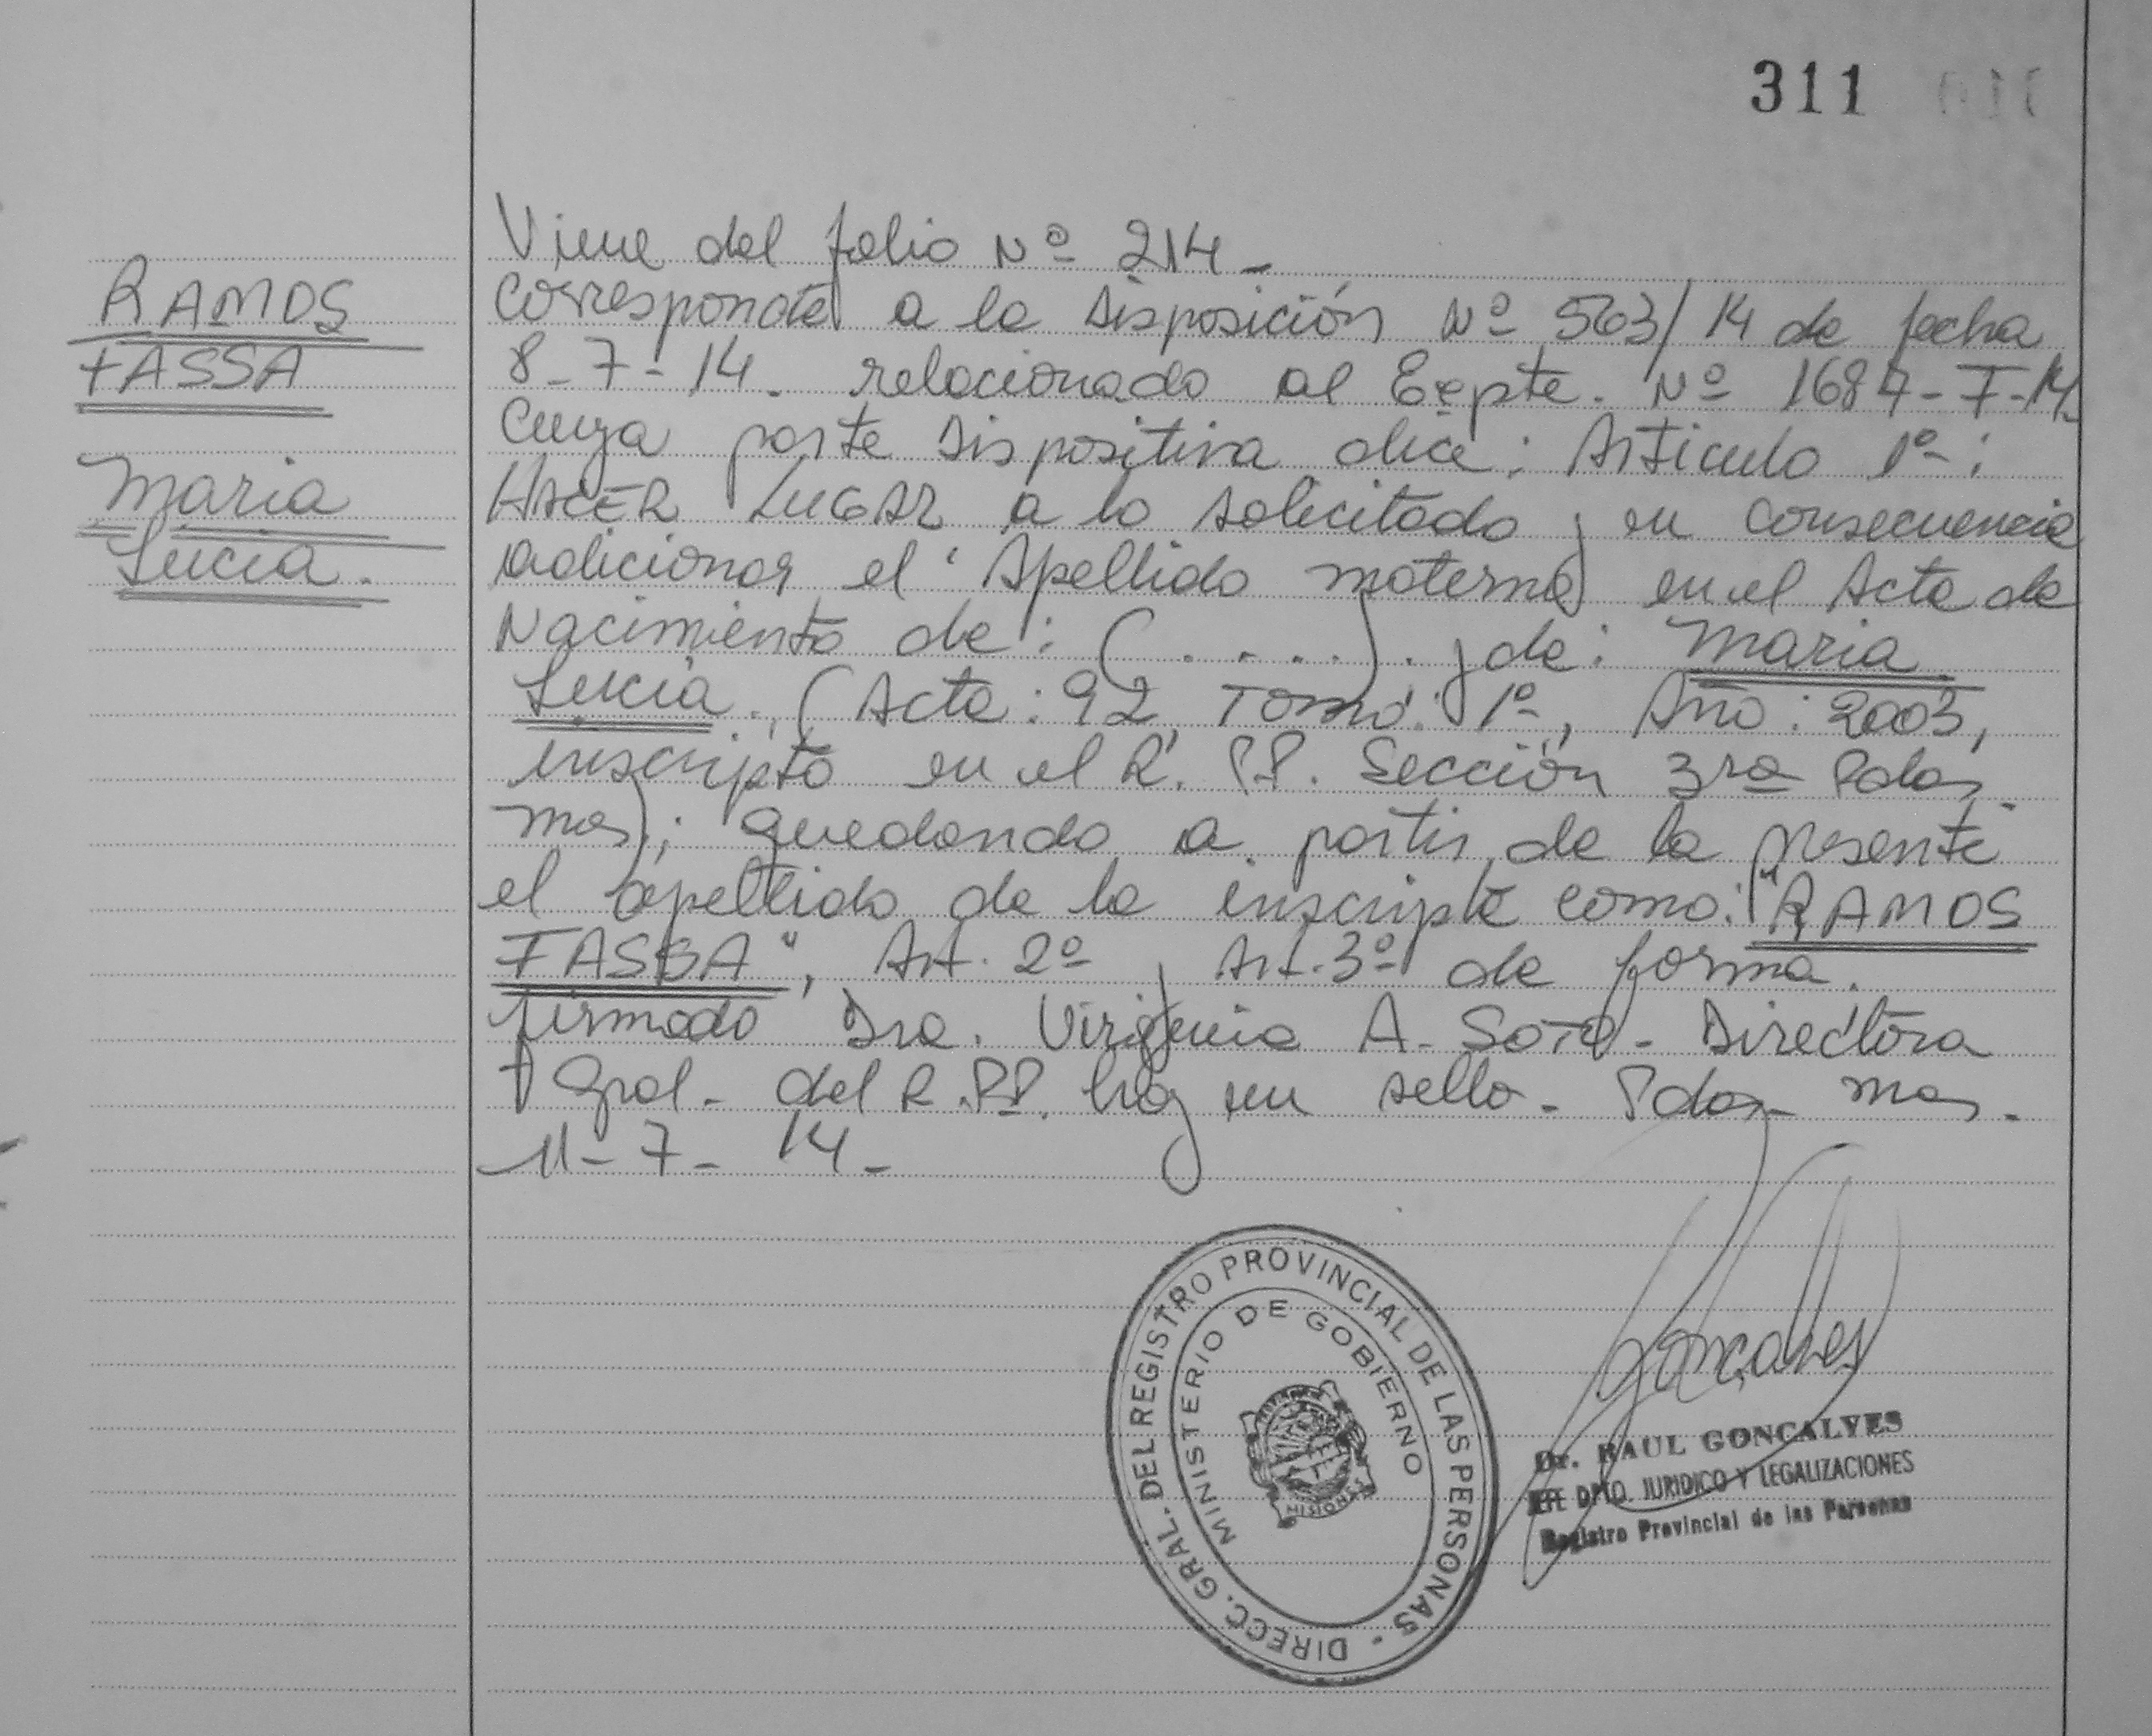 311
RAMOS
TASSA
Maria
Lucia.
Viene del folio Nº 214-
Corresponde a la Disposición Nº 563/14 de fecha
8-7-14. relacionado al Expte. Nº 1687-T-14
Cuya parte Dispositiva dice: Articulo 1º:
HACER LUGAR a lo solicitado y en consecuencia
adicionar el Apellido materno en el Acta de
Nacimiento de: (.....). y de: Maria
Lucia. (Acta: 92, Tomo: 1º, Año: 2003,
inscripto en el R. PP. Sección 3ra Pdas.
Mnes); quedando a partir de la presente
el apellido de la inscripta como: "RAMOS
TASSA", Art. 2º y Art. 3º de forma.
firmado Dra. Virginia A. SOTO- Directora
Gral. del R.PP. hay un sello- Pdas- Mnes.
11-7-14-
Goncalves
DIRECC. GRAL. DEL REGISTRO PROVINCIAL DE LAS PERSONAS -
MINISTERIO DE GOBIERNO
MISIONES
Dr. RAUL GONCALVES
JEFE DPTO. JURIDICO Y LEGALIZACIONES
Registro Provincial de las Personas